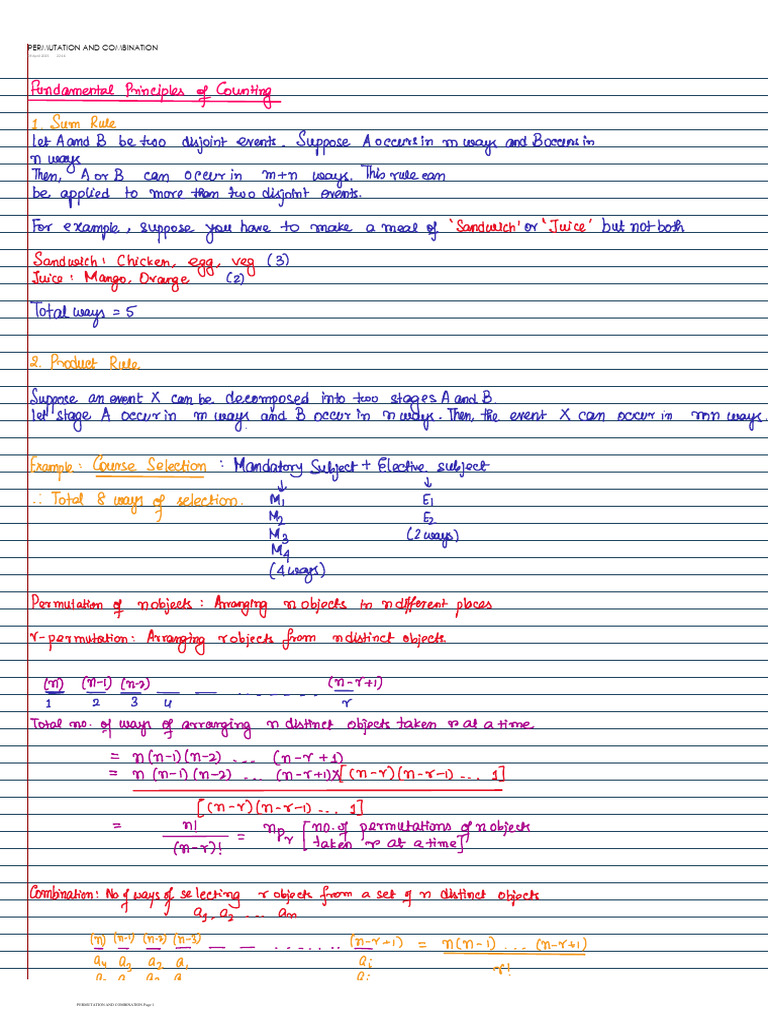 PERMUTATION AND COMBINATION
Fundamental Principles of Counting
1. Sum Rule
Let A and B be two disjoint events. Suppose A occurs in m ways and B occurs in
n ways
Then, A or B can occur in m+n ways. This rule can
be applied to more than two disjoint events.
For example, suppose you have to make a meal of 'Sandwich' or 'Juice' but not both
Sandwich: Chicken, egg, veg (3)
Juice: Mango, Orange (2)
Total ways = 5
2. Product Rule
Suppose an event X can be decomposed into two stages A and B
let stage A occur in m ways and B occur in n ways. Then, the event X can occur in mn ways.
Example: Course Selection : Mandatory Subject + Elective subject
↓ ↓
∴ Total 8 ways of selection. M1 E1
M2 E2
M3 (2 ways)
M4
(4 ways)
Permutation of n objects: Arranging n objects in n different places
r-permutation: Arranging r objects from n distinct objects.
(n) (n-1) (n-2) __ __ ....... (n-r+1)
1 2 3 4 r
Total no. of ways of arranging n distinct objects taken r at a time
= n(n-1)(n-2) ... (n-r+1)
= n (n-1)(n-2) ... (n-r+1)x[(n-r)(n-r-1) ... 1]
[(n-r)(n-r-1) ... 1]
= n! / (n-r)! = nPr [no. of permutations of n objects
taken r at a time]
Combination: No of ways of selecting r objects from a set of n distinct objects
a1, a2 ... an
(n) (n-1) (n-2) (n-3) __ __ ....... (n-r+1) = n(n-1) ... (n-r+1)
a4 a3 a2 a1 ai r!
PERMUTATION AND COMBINATION Page 1